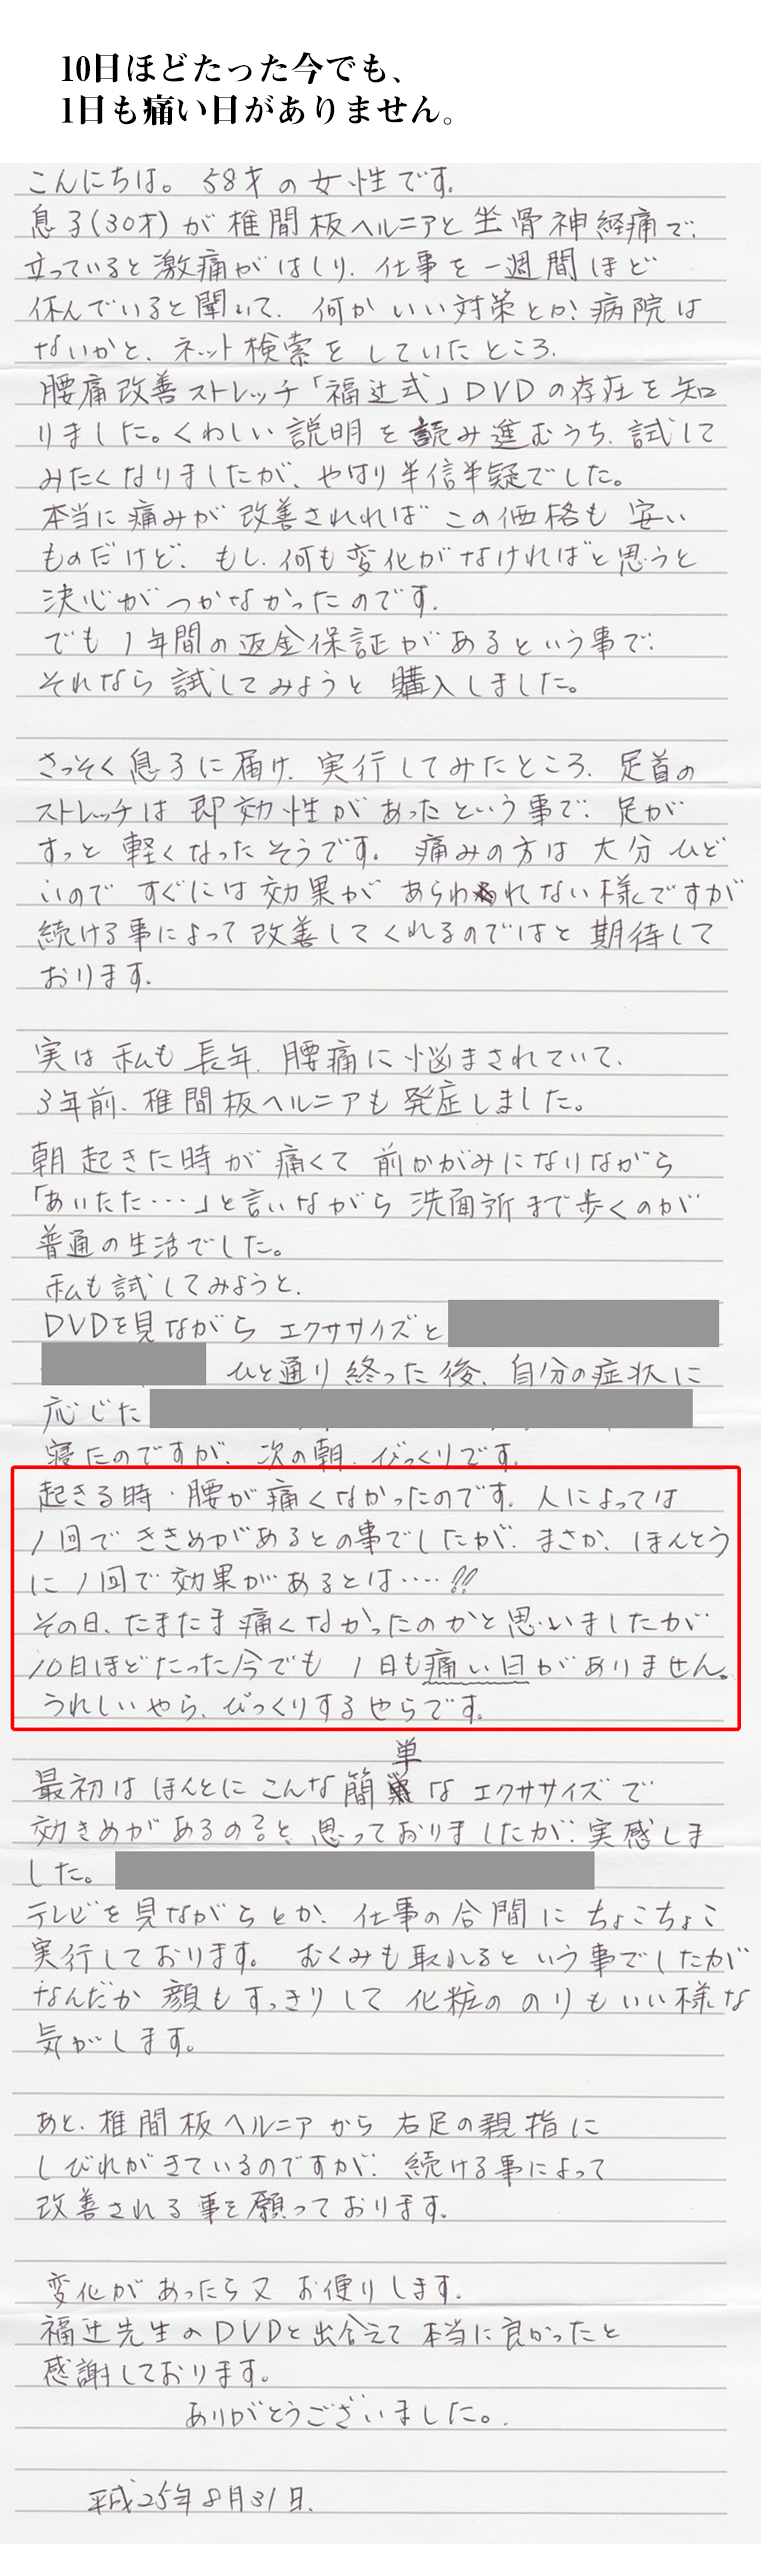 10日ほどたった今でも、
1日も痛い日がありません。
こんにちは。58才の女性です。
息子(30才)が椎間板ヘルニアと坐骨神経痛で、
立っていると激痛がはしり、仕事を一週間ほど
休んでいると聞いて、何かいい対策とか、病院は
ないかと、ネット検索をしていたところ、
腰痛改善ストレッチ「福辻式」DVDの存在を知
りました。くわしい説明を読み進むうち、試して
みたくなりましたが、やはり半信半疑でした。
本当に痛みが改善されればこの価格も安い
ものだけど、もし、何も変化がなければと思うと
決心がつかなかったのです。
でも1年間の返金保証があるという事で、
それなら試してみようと購入しました。
さっそく息子に届け、実行してみたところ、足首の
ストレッチは即効性があったという事で、足が
すっと軽くなったそうです。痛みの方は大分ひど
いのですぐには効果があらわれない様ですが
続ける事によって改善してくれるのではと期待して
おります。
実は私も長年、腰痛に悩まされていて、
3年前、椎間板ヘルニアも発症しました。
朝起きた時が痛くて前かがみになりながら
「あいたた・・・」と言いながら洗面所まで歩くのが
普通の生活でした。
私も試してみようと、
DVDを見ながらエクササイズと
ひと通り終った後、自分の症状に
応じた
寝たのですが、次の朝、びっくりです。
起きる時、腰が痛くなかったのです。人によっては
1回でききめがあるとの事でしたが、まさか、ほんとう
に1回で効果があるとは・・・・!!
その日、たまたま痛くなかったのかと思いましたが
10日ほどたった今でも1日も痛い日がありません。
うれしいやら、びっくりするやらです。
最初はほんとにこんな簡単なエクササイズで
効きめがあるの?と、思っておりましたが、実感しま
した。
テレビを見ながらとか、仕事の合間にちょこちょこ
実行しております。むくみも取れるという事でしたが
なんだか顔もすっきりして化粧ののりもいい様な
気がします。
あと、椎間板ヘルニアから右足の親指に
しびれがきているのですが、続ける事によって
改善される事を願っております。
変化があったら又お便りします。
福辻先生のDVDと出会えて本当に良かったと
感謝しております。
ありがとうございました。
平成25年8月31日.